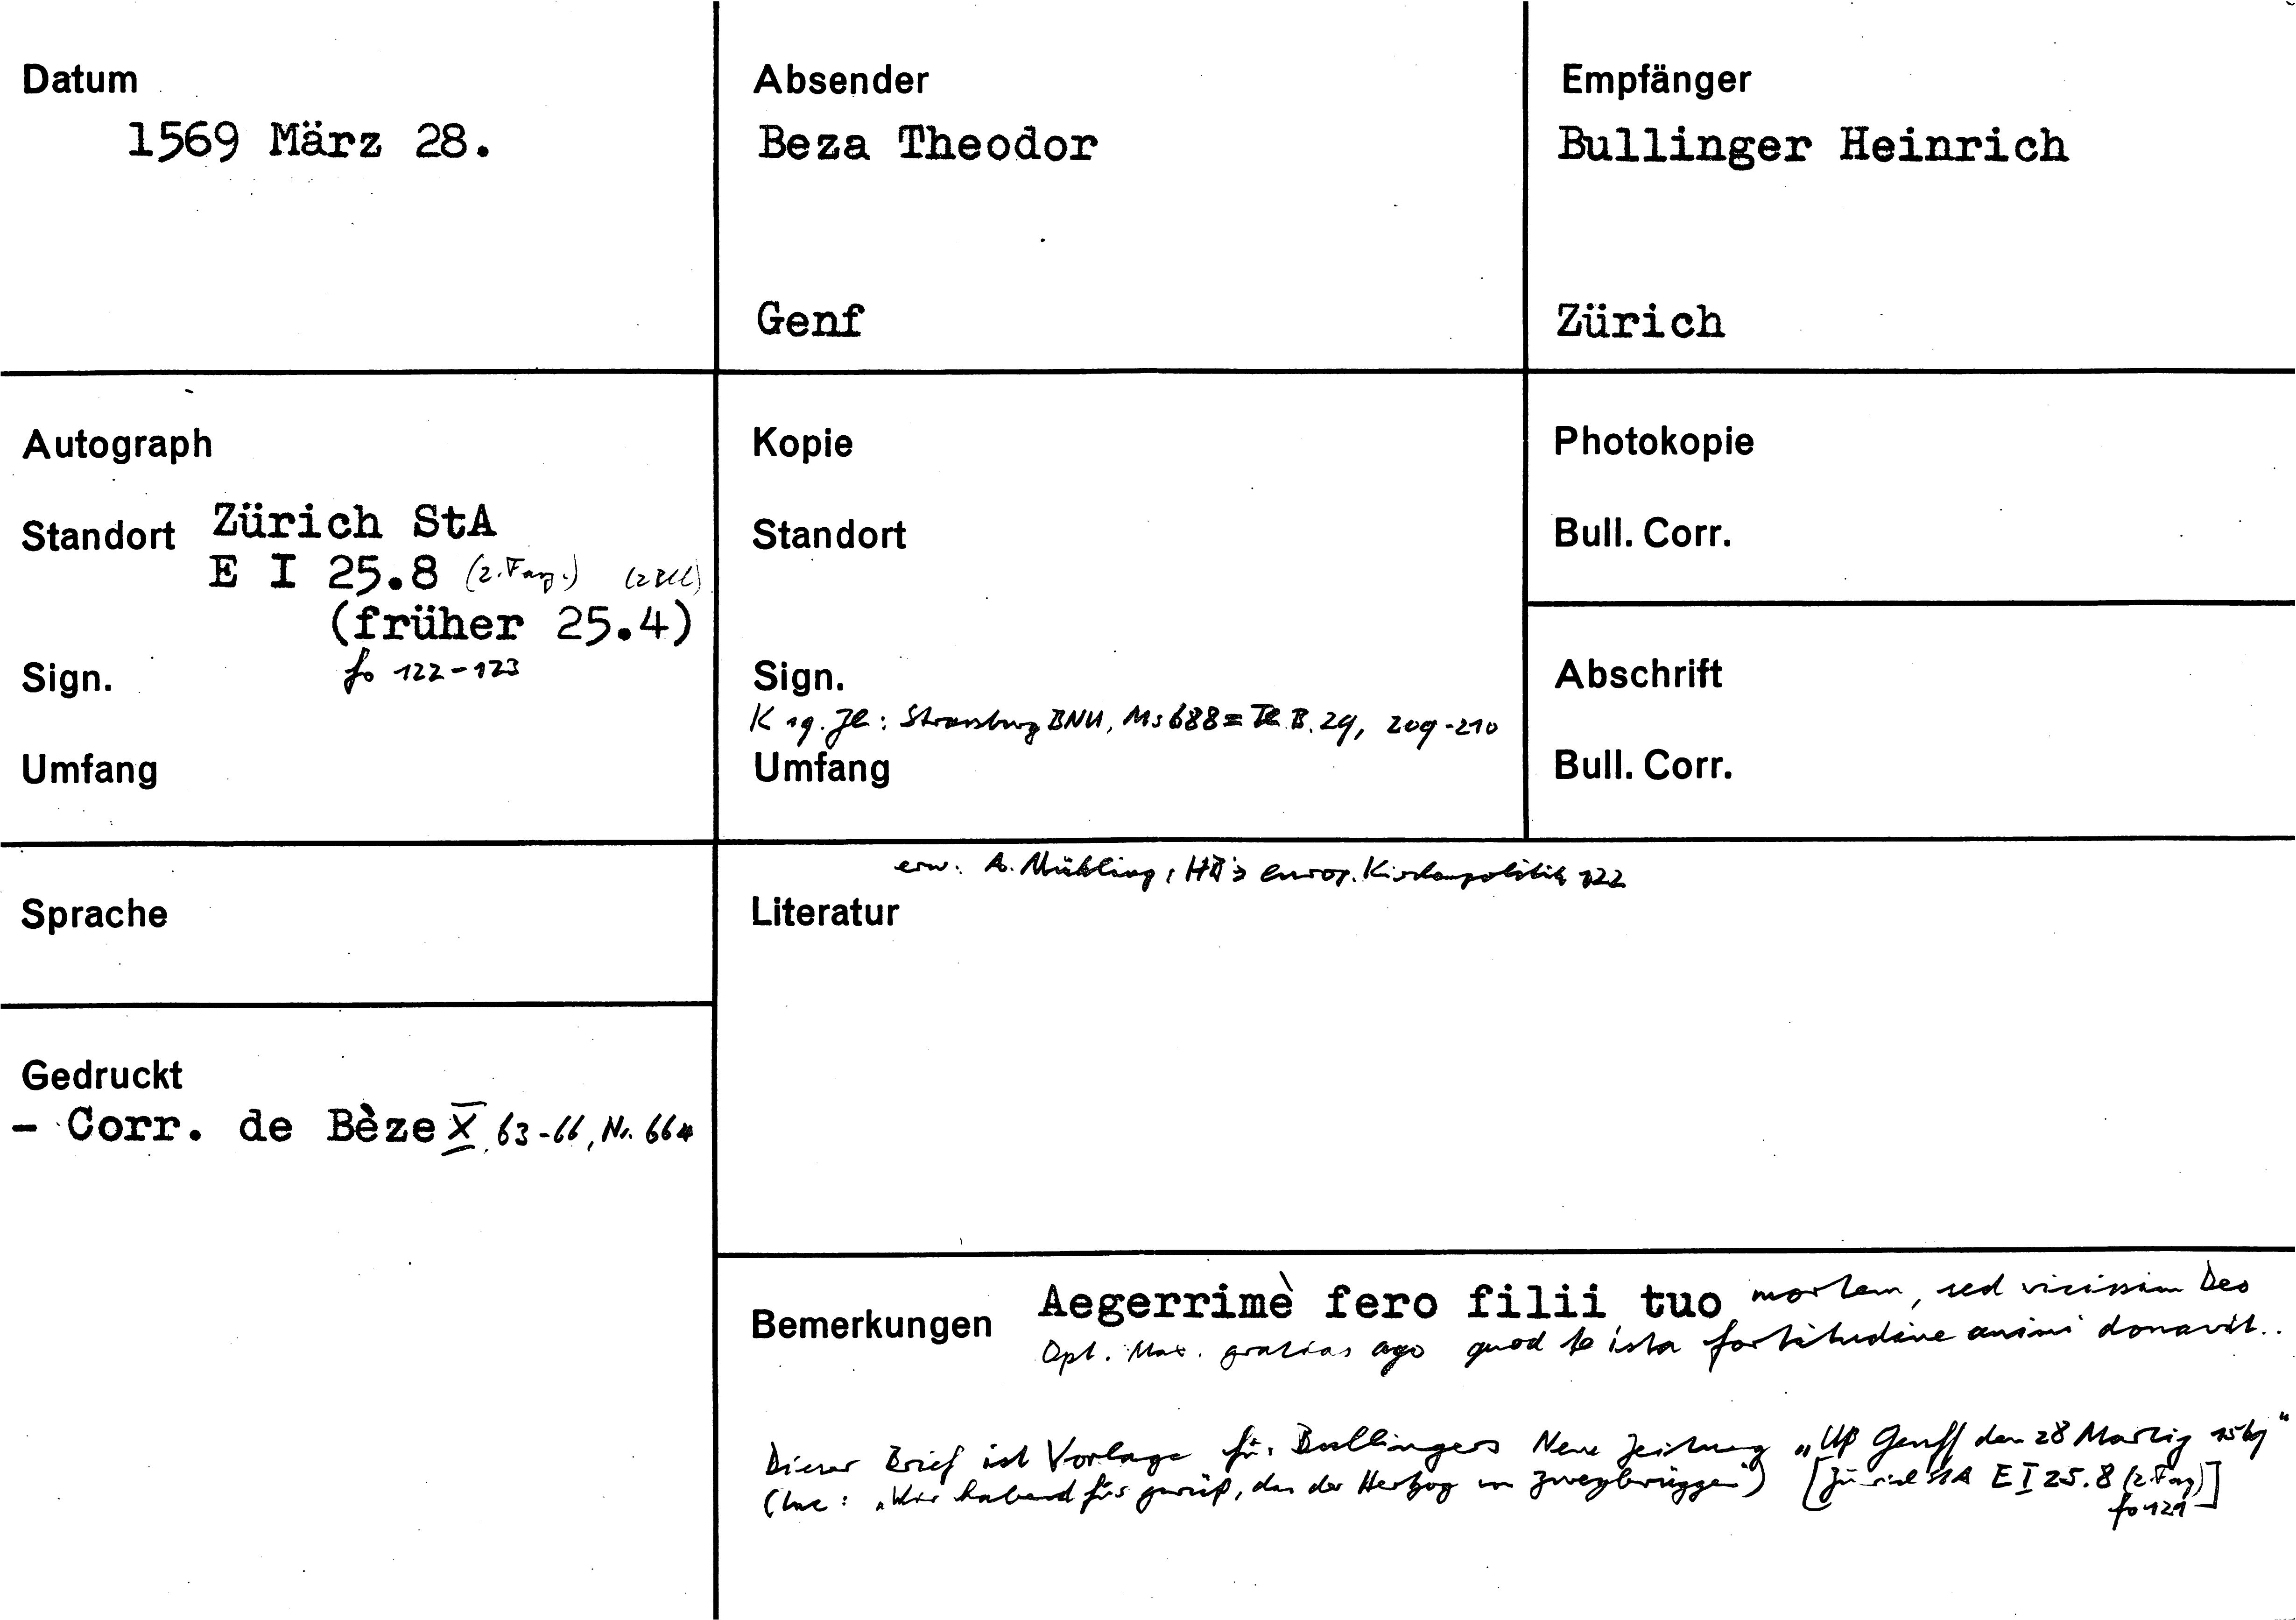 Datum
1569 März 28.
Absender
Beza Theodor
Genf
Empfänger
Bullinger Heinrich
Zürich
Autograph
Standort Zürich StA
E I 25.8 (2. Fasz.) (2 Bll)
(früher 25.4)
Sign. fo 122-123
Umfang
Kopie
Standort
Sign.
K 19. Jh: Strassburg BNU, Ms 688 = Th. B. 29, 209-210
Umfang
Photokopie
Bull. Corr.
Abschrift
Bull. Corr.
Sprache
erw. A. Mühling, HB's europ. Kirchenpolitik 122
Literatur
Gedruckt
- Corr. de Bèze X, 63-66, Nr. 664
Bemerkungen Aegerrimè fero filii tuo mortem, sed vicissim Deo
Opt. Max. gratias ago quod te ista fortitudine animi donavit..
Dieser Brief ist Vorlage für Bullingers Neue Zeitung „Uß Genff den 28 Martij 1569"
(Inc: „Wir habend für gwüß, das der Hertzog von Zweybrüggen") [Zürich StA E I 25.8 (2. Fasz)]
fo 129